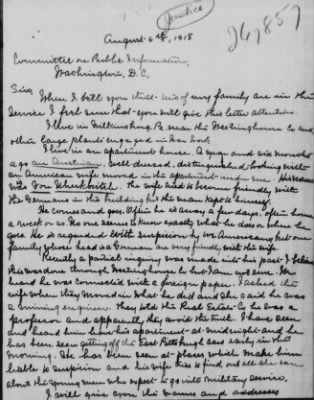 Justice
267,857
August 6th, 1918
Committee on Public Information,
Washington, D.C.
Sirs,
When I tell you that of my family are in the
Service I feel sure that you will give this letter attention.
I live in Wilkinsburg Pa near the Westinghouse Co and
other large plants engaged in war work
I live in an apartment house. A year and six months
ago an Austrian, well dressed, distinguished looking with
an American wife moved in the apartment under me. His name
was Von. The wife tried to become friendly with
the Germans in the building but the man kept to himself.
He comes and goes. Often he is away a few days, often home
a week or so. No one seems to know exactly what he does or where he
goes. He is regarded with suspicion by we Americans but one
family whose head is a German are very friendly with the wife.
Recently a partial inquiry was made into his past. I believe
this was done through Westinghouse Co but I am not sure. We
heard he was connected with a foreign paper. I asked the
wife when they moved in what he did and she said he was
a mining engineer. They told the Real Estate Co he was a
professor and apparently they avoid the truth. I have seen
and heard him leave his apartment at midnight and he
has been seen getting off the East Pittsburgh cars early in the
morning. He has been seen at places which make him
liable to suspicion and his wife tries to find out all she can
about the young men who expect to go into military service.
I will give you the names and addresses